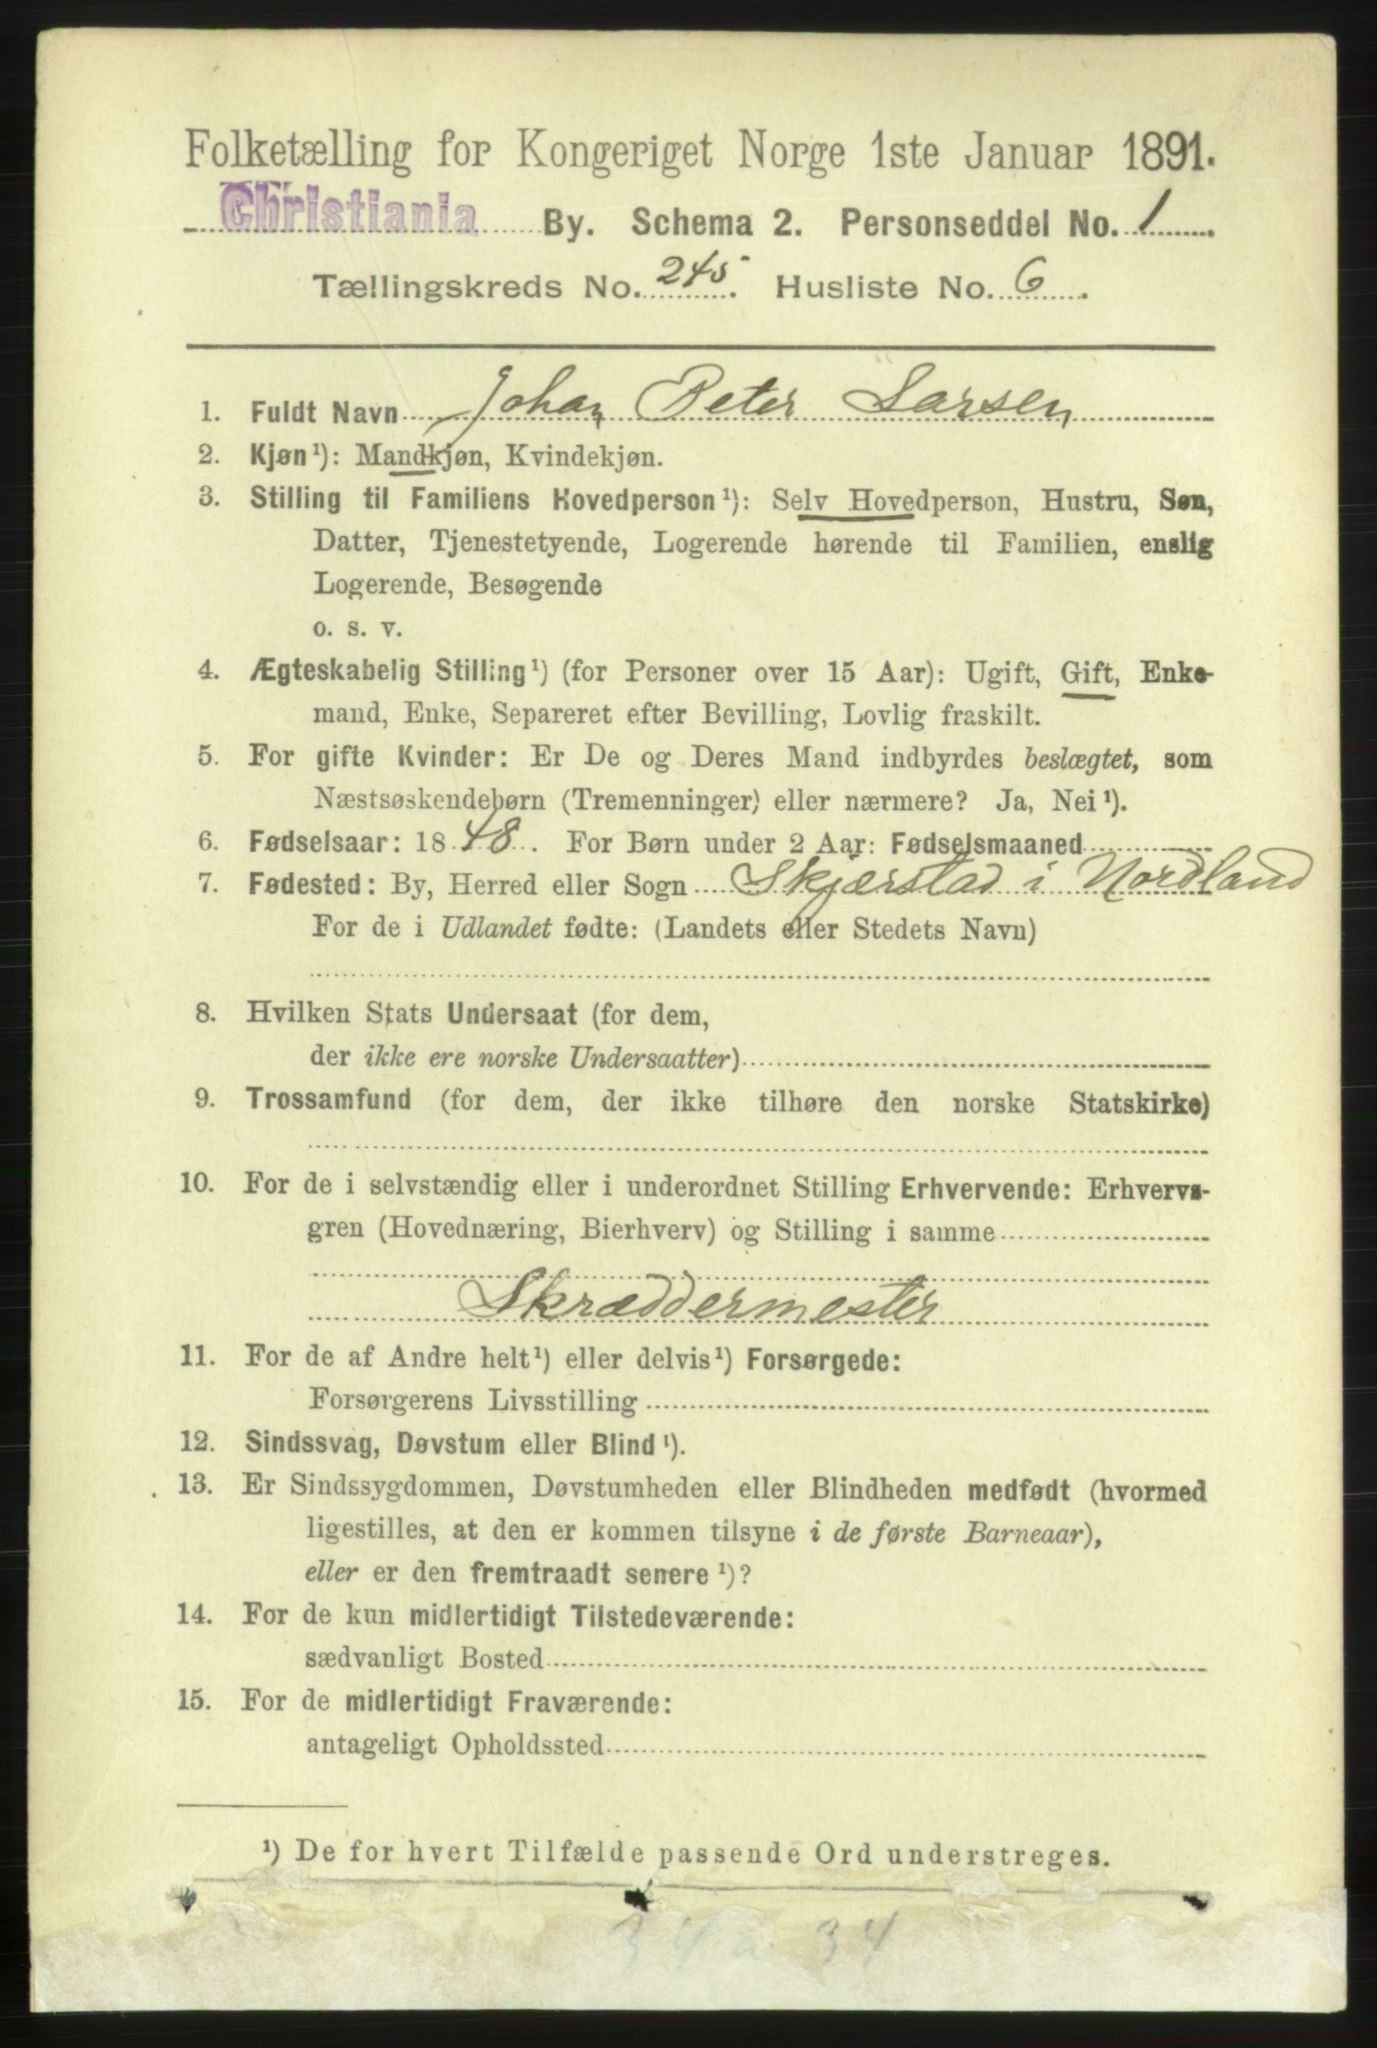 Folketælling for Kongeriget Norge 1ste Januar 1891.
Christiania By. Schema 2. Personseddel No. 1
Tællingskreds No. 245. Husliste No. 6.
1. Fuldt Navn Johan Peter Larsen
2. Kjøn¹): Mandkjøn, Kvindekjøn.
3. Stilling til Familiens Hovedperson¹): Selv Hovedperson, Hustru, Søn,
Datter, Tjenestetyende, Logerende hørende til Familien, enslig
Logerende, Besøgende
o. s. v.
4. Ægteskabelig Stilling¹) (for Personer over 15 Aar): Ugift, Gift, Enke-
mand, Enke, Separeret efter Bevilling, Lovlig fraskilt.
5. For gifte Kvinder: Er De og Deres Mand indbyrdes beslægtet, som
Næstsøskendebørn (Tremenninger) eller nærmere? Ja, Nei¹).
6. Fødselsaar: 1848. For Børn under 2 Aar: Fødselsmaaned
7. Fødested: By, Herred eller Sogn Skjærstad i Nordland
For de i Udlandet fødte: (Landets eller Stedets Navn)
8. Hvilken Stats Undersaat (for dem,
der ikke ere norske Undersaatter)
9. Trossamfund (for dem, der ikke tilhøre den norske Statskirke)
10. For de i selvstændig eller i underordnet Stilling Erhvervende: Erhvervs-
gren (Hovednæring, Bierhverv) og Stilling i samme
Skræddermester
11. For de af Andre helt¹) eller delvis¹) Forsørgede:
Forsørgerens Livsstilling
12. Sindssvag, Døvstum eller Blind¹).
13. Er Sindssygdommen, Døvstumheden eller Blindheden medfødt (hvormed
ligestilles, at den er kommen tilsyne i de første Barneaar),
eller er den fremtraadt senere¹)?
14. For de kun midlertidigt Tilstedeværende:
sædvanligt Bosted
15. For de midlertidigt Fraværende:
antageligt Opholdssted
¹) De for hvert Tilfælde passende Ord understreges.
34 a 34